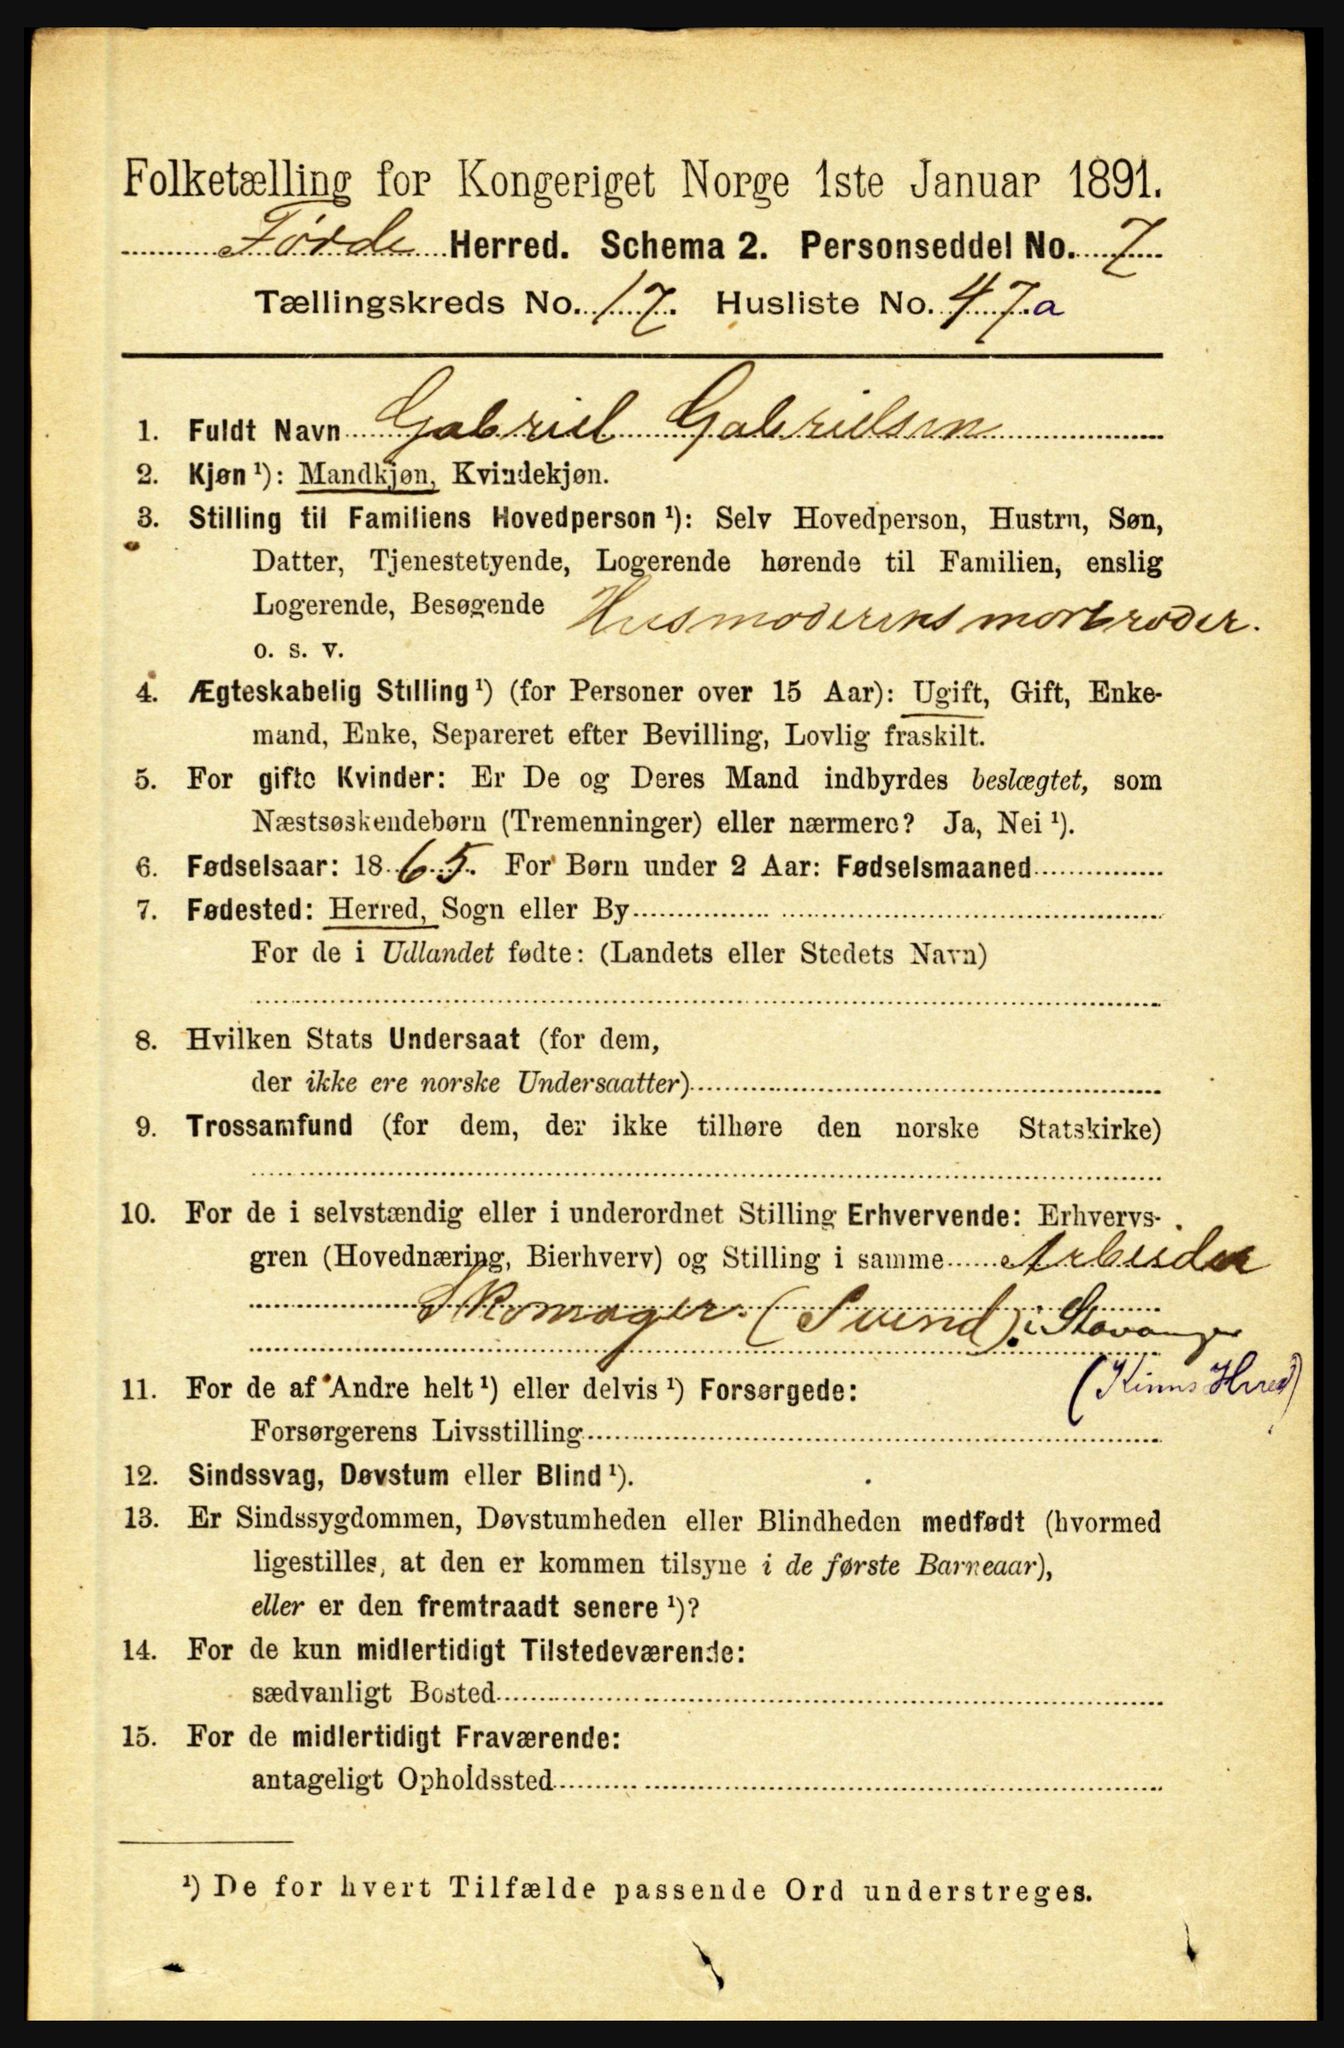 Folketælling for Kongeriget Norge 1ste Januar 1891.
Førde Herred. Schema 2. Personseddel No. 7
Tællingskreds No. 17. Husliste No. 47.a
1. Fuldt Navn Gabriel Gabrielsen
2. Kjøn ¹): Mandkjøn, Kvindekjøn.
3. Stilling til Familiens Hovedperson ¹): Selv Hovedperson, Hustru, Søn,
Datter, Tjenestetyende, Logerende hørende til Familien, enslig
Logerende, Besøgende Husmoderens morbroder.
o. s. v.
4. Ægteskabelig Stilling ¹) (for Personer over 15 Aar): Ugift, Gift, Enke-
mand, Enke, Separeret efter Bevilling, Lovlig fraskilt.
5. For gifte Kvinder: Er De og Deres Mand indbyrdes beslægtet, som
Næstsøskendebørn (Tremenninger) eller nærmere? Ja, Nei ¹).
6. Fødselsaar: 1865. For Børn under 2 Aar: Fødselsmaaned
7. Fødested: Herred, Sogn eller By
For de i Udlandet fødte: (Landets eller Stedets Navn)
8. Hvilken Stats Undersaat (for dem,
der ikke ere norske Undersaatter)
9. Trossamfund (for dem, der ikke tilhøre den norske Statskirke)
10. For de i selvstændig eller i underordnet Stilling Erhvervende: Erhvervs-
gren (Hovednæring, Bierhverv) og Stilling i samme Arbeider
Skomager. (Svend) i Stavanger
(Kinns Herred)
11. For de af Andre helt ¹) eller delvis ¹) Forsørgede:
Forsørgerens Livsstilling
12. Sindssvag, Døvstum eller Blind ¹).
13. Er Sindssygdommen, Døvstumheden eller Blindheden medfødt (hvormed
ligestilles, at den er kommen tilsyne i de første Barneaar),
eller er den fremtraadt senere ¹)?
14. For de kun midlertidigt Tilstedeværende:
sædvanligt Bosted
15. For de midlertidigt Fraværende:
antageligt Opholdssted
¹) De for hvert Tilfælde passende Ord understreges.